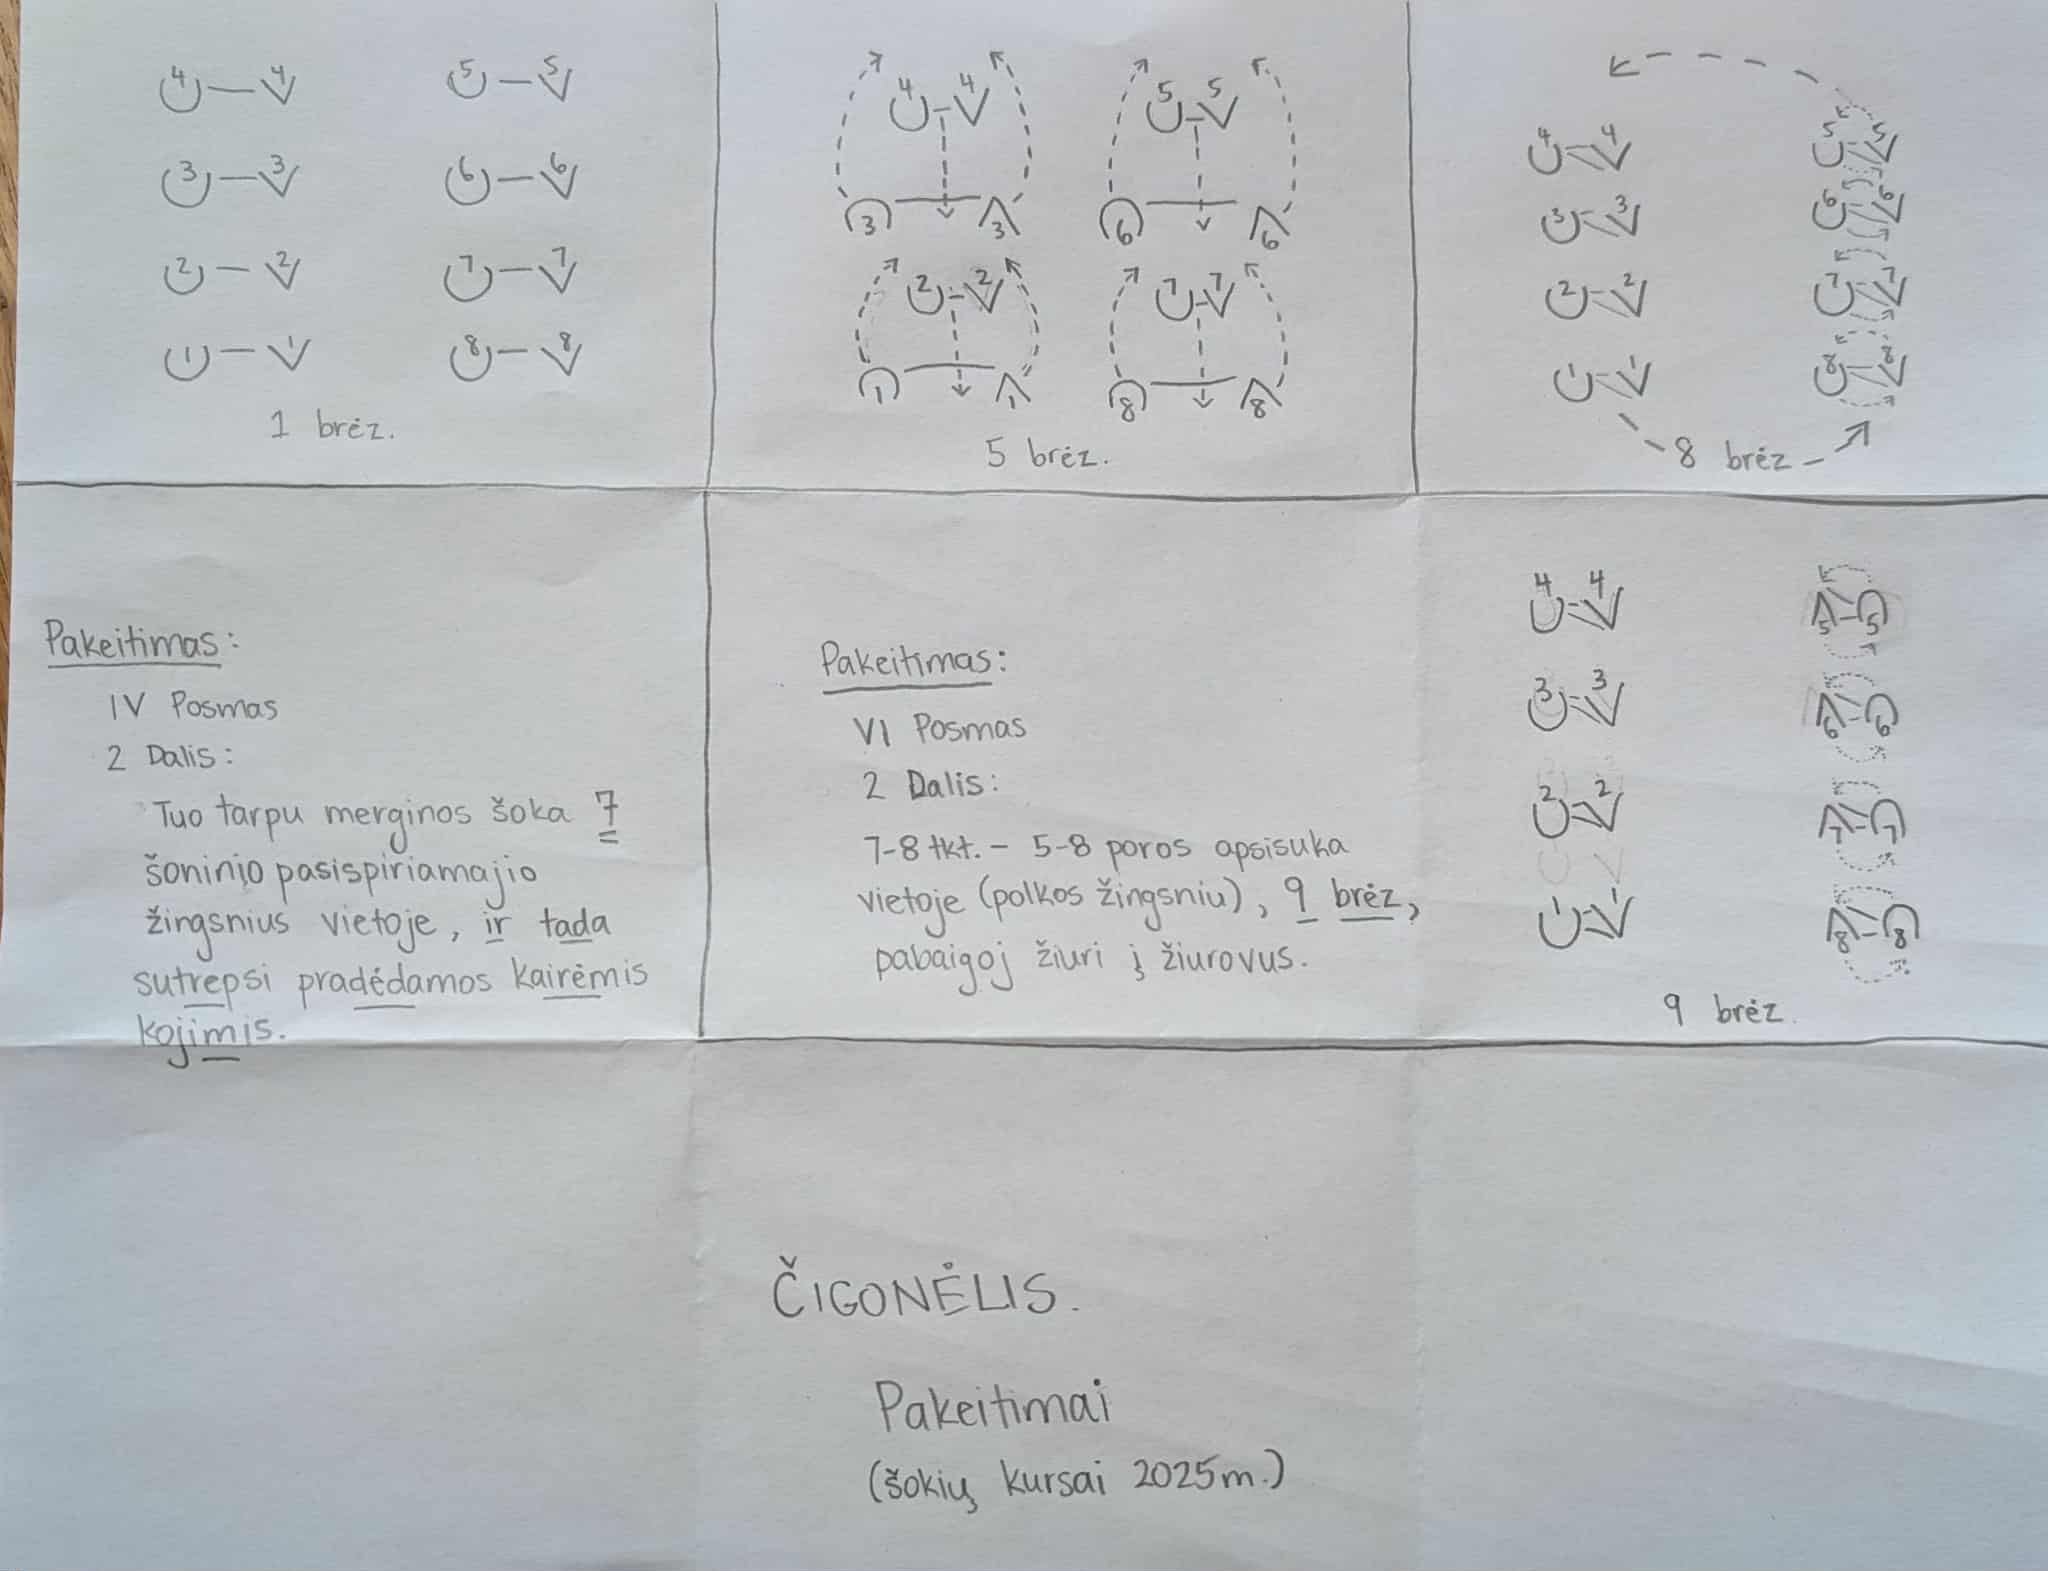 4 4 5 5
3 3 6 6
2 2 7 7
1 1 8 8
1 brėž.
4 4 5 5
3 3 6 6
2 2 7 7
1 1 8 8
5 brėž.
4 4 5 5
3 3 6 6
2 2 7 7
1 1 8 8
8 brėž
Pakeitimas:
IV Posmas
2 Dalis:
Tuo tarpu merginos šoka 7
šoninio pasispiriamajio
žingsnius vietoje, ir tada
sutrepsi pradėdamos kairėmis
kojimis.
Pakeitimas:
VI Posmas
2 Dalis:
7-8 tkt. - 5-8 poros apsisuka
vietoje (polkos žingsniu), 9 brėž,
pabaigoj žiuri į žiurovus.
4 4 5 5
3 3 6 6
2 2 7 7
1 1 8 8
9 brėž.
ČIGONĖLIS.
Pakeitimai
(šokių kursai 2025m.)